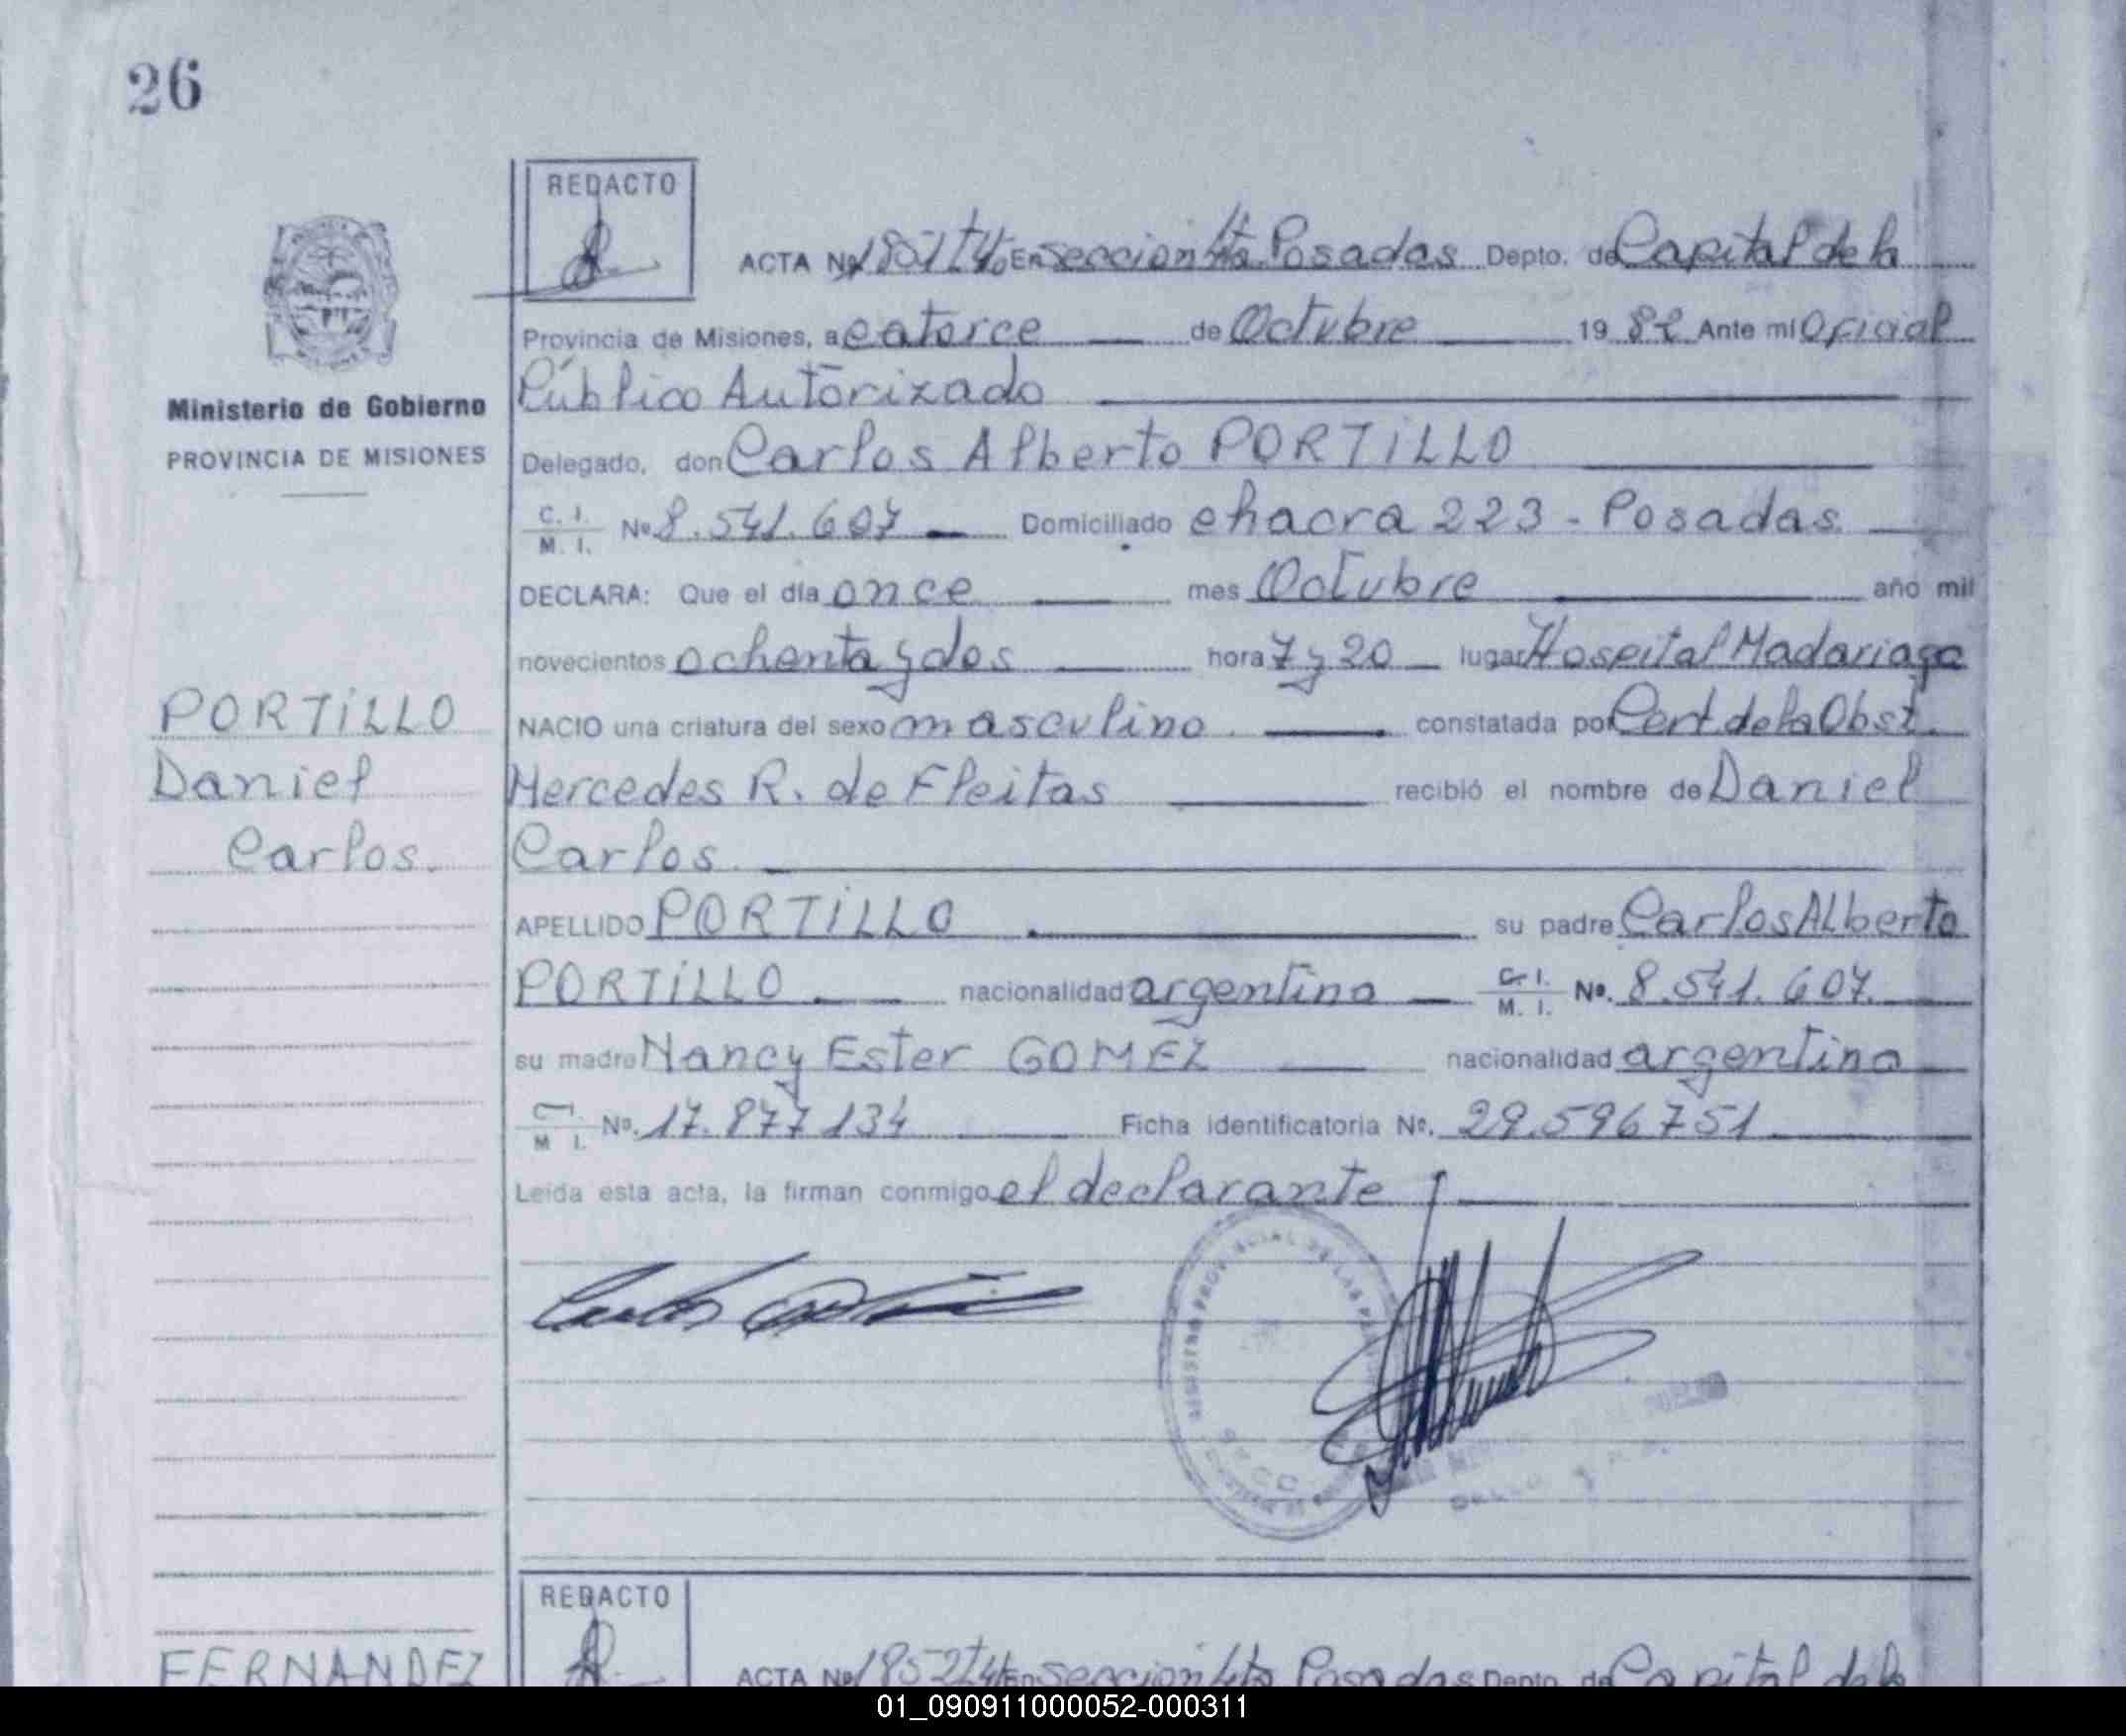 26
REDACTO
ACTA Nº 1851 Tº 4º En sección 4ta Posadas Depto. de Capital de la
Provincia de Misiones, a catorce de Octubre 19 82 Ante mí Oficial
Público Autorizado
Ministerio de Gobierno
PROVINCIA DE MISIONES
Delegado, don Carlos Alberto PORTILLO
C. I. M. I. Nº 8.541.607 Domiciliado chacra 223 - Posadas
DECLARA: Que el día once mes Octubre año mil
novecientos ochenta y dos hora 7 y 20 lugar Hospital Madariaga
PORTILLO
Daniel
Carlos.
NACIO una criatura del sexo masculino constatada por Cert. de la Obst.
Mercedes R. de Fleitas recibió el nombre de Daniel
Carlos
APELLIDO PORTILLO su padre Carlos Alberto
PORTILLO nacionalidad argentina C. I. M. I. Nº. 8.541.607
su madre Nancy Ester GOMEZ nacionalidad argentina
C. I. M I. Nº. 17.877134 Ficha identificatoria Nº. 29.596751
Leída esta acta, la firman conmigo el declarante
REGISTRO PROVINCIAL DE LAS
REDACTO
FERNANDEZ
ACTA Nº 1852 Tº 4º En sección 4ta Posadas Depto. de Capital de la
01_090911000052-000311